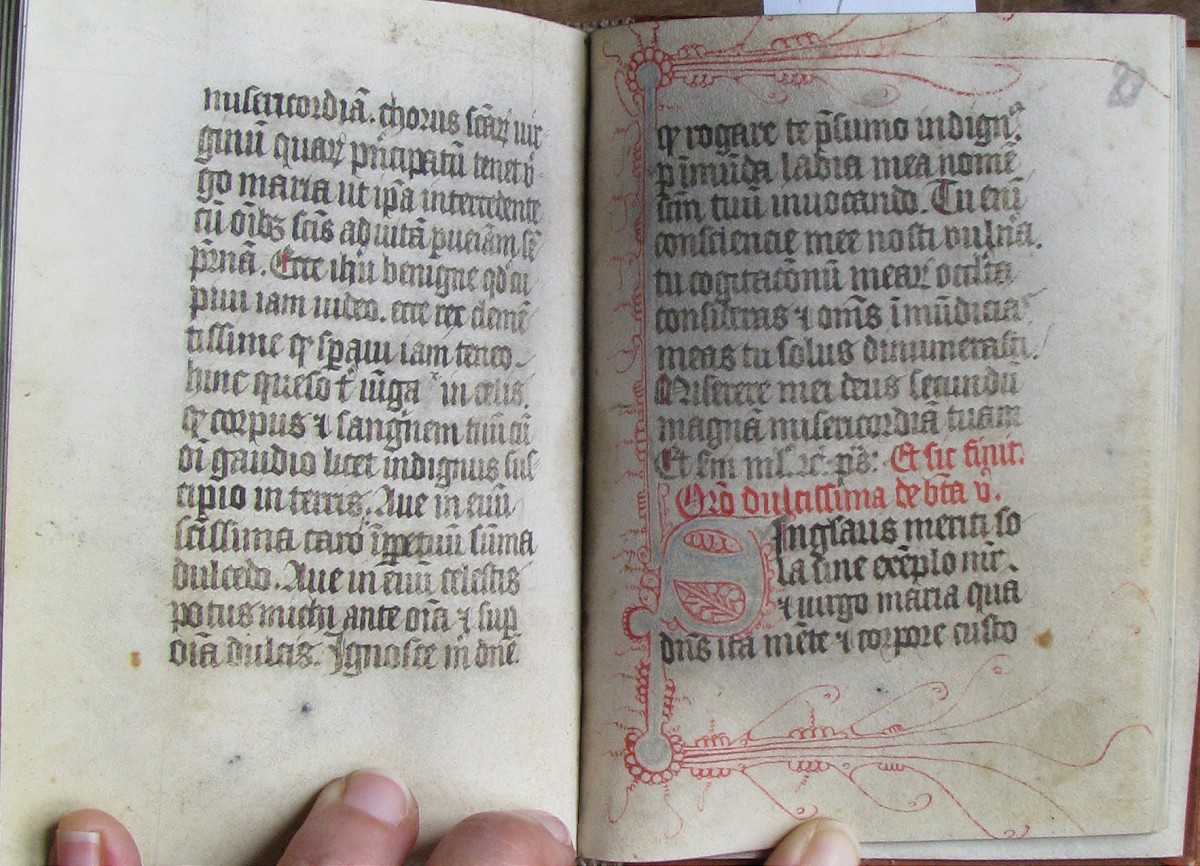 misericordiā. chorus scāꝝ uir
ginū quaꝝ pⁱncipatū tenet v̄
go maria ut ip̄a intercedente
cū oīb꒳ scīs ad uitā pueiam sē
p̄rnā. Ecce ihū benigne qd̛ cu
piui iam uideo. ecce rex clemē
tissime qͥ sp̄aui iam teneo.
hinc queso tͥ iūgaͬ in celis.
qͥ corpus ⁊ sangⁱnem tuū cū
oī gaudio licet indignus sus
cipio in terris. Aue in euū
scīssima caro īꝑpetuū sūma
dulcedo. Aue in euū celestis
potus michi ante oīa ⁊ sup
oīa dulcis. Ignosce m̄ dn̄e
qͥ rogare te p̄sumo indignͣ.
ꝑ īmūda labia mea nomē
scm̄ tuū inuocando. Tu eiū
consciencie mee nosti uulnͣa.
tu cogitacōnū meaꝝ occlͣta
consideras ⁊ om̄s īmūdicias
meas tu solus dinumerasti.
Miserere mei deus secundū
magnā misericordiā tuam
Et sm̄ ml̄. ⁊c̄. ps̄: Et sic finit.
Orō dulcissima de bt̄a v̄.
Singlaris meriti so
la sine exēplo mr̄.
⁊ uirgo maria quā
dn̄s ita mēte ⁊ corpore custo